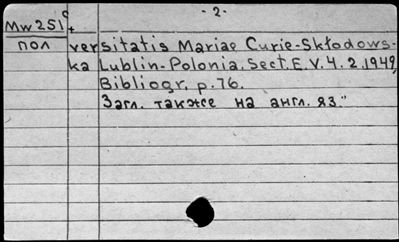 - 2 -
Mw 251 c
+
пол
versitatis Mariae Curie-Skłodows-
ka Lublin-Polonia. Sect. E. V. 4. 2. 1949,
Bibliogr. p. 76.
Загл. также на англ. яз."